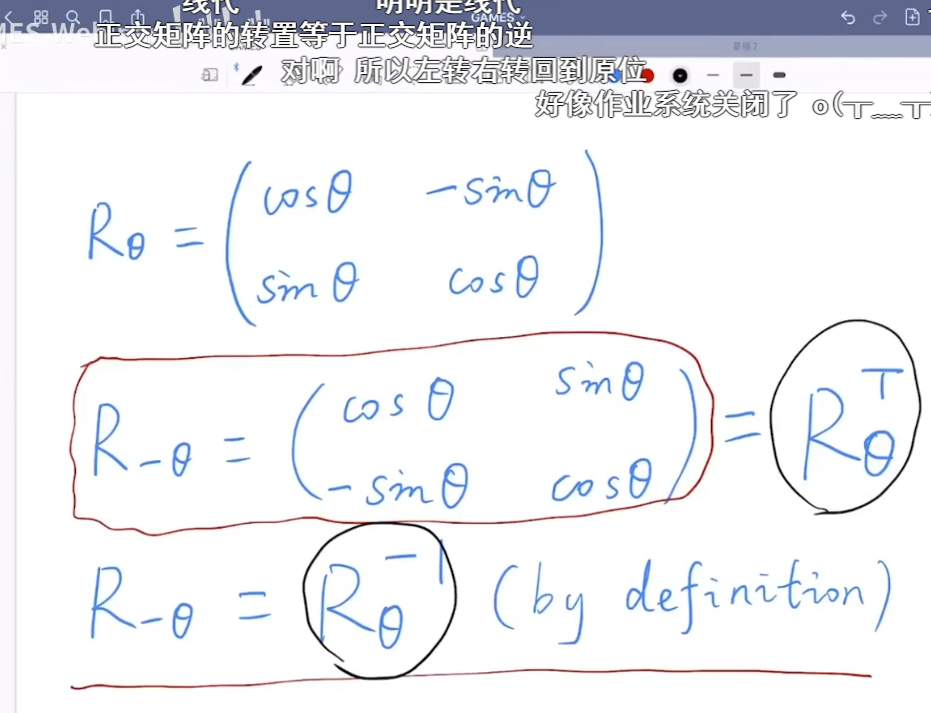 线代 明明是线代
GAMES
正交矩阵的转置等于正交矩阵的逆
对啊 所以左转右转回到原位
好像作业系统关闭了 o(╥﹏╥
R_θ = ( cosθ -sinθ
sinθ cosθ )
R_{-θ} = ( cosθ sinθ
-sinθ cosθ ) = R_θ^T
R_{-θ} = R_θ^{-1} (by definition)